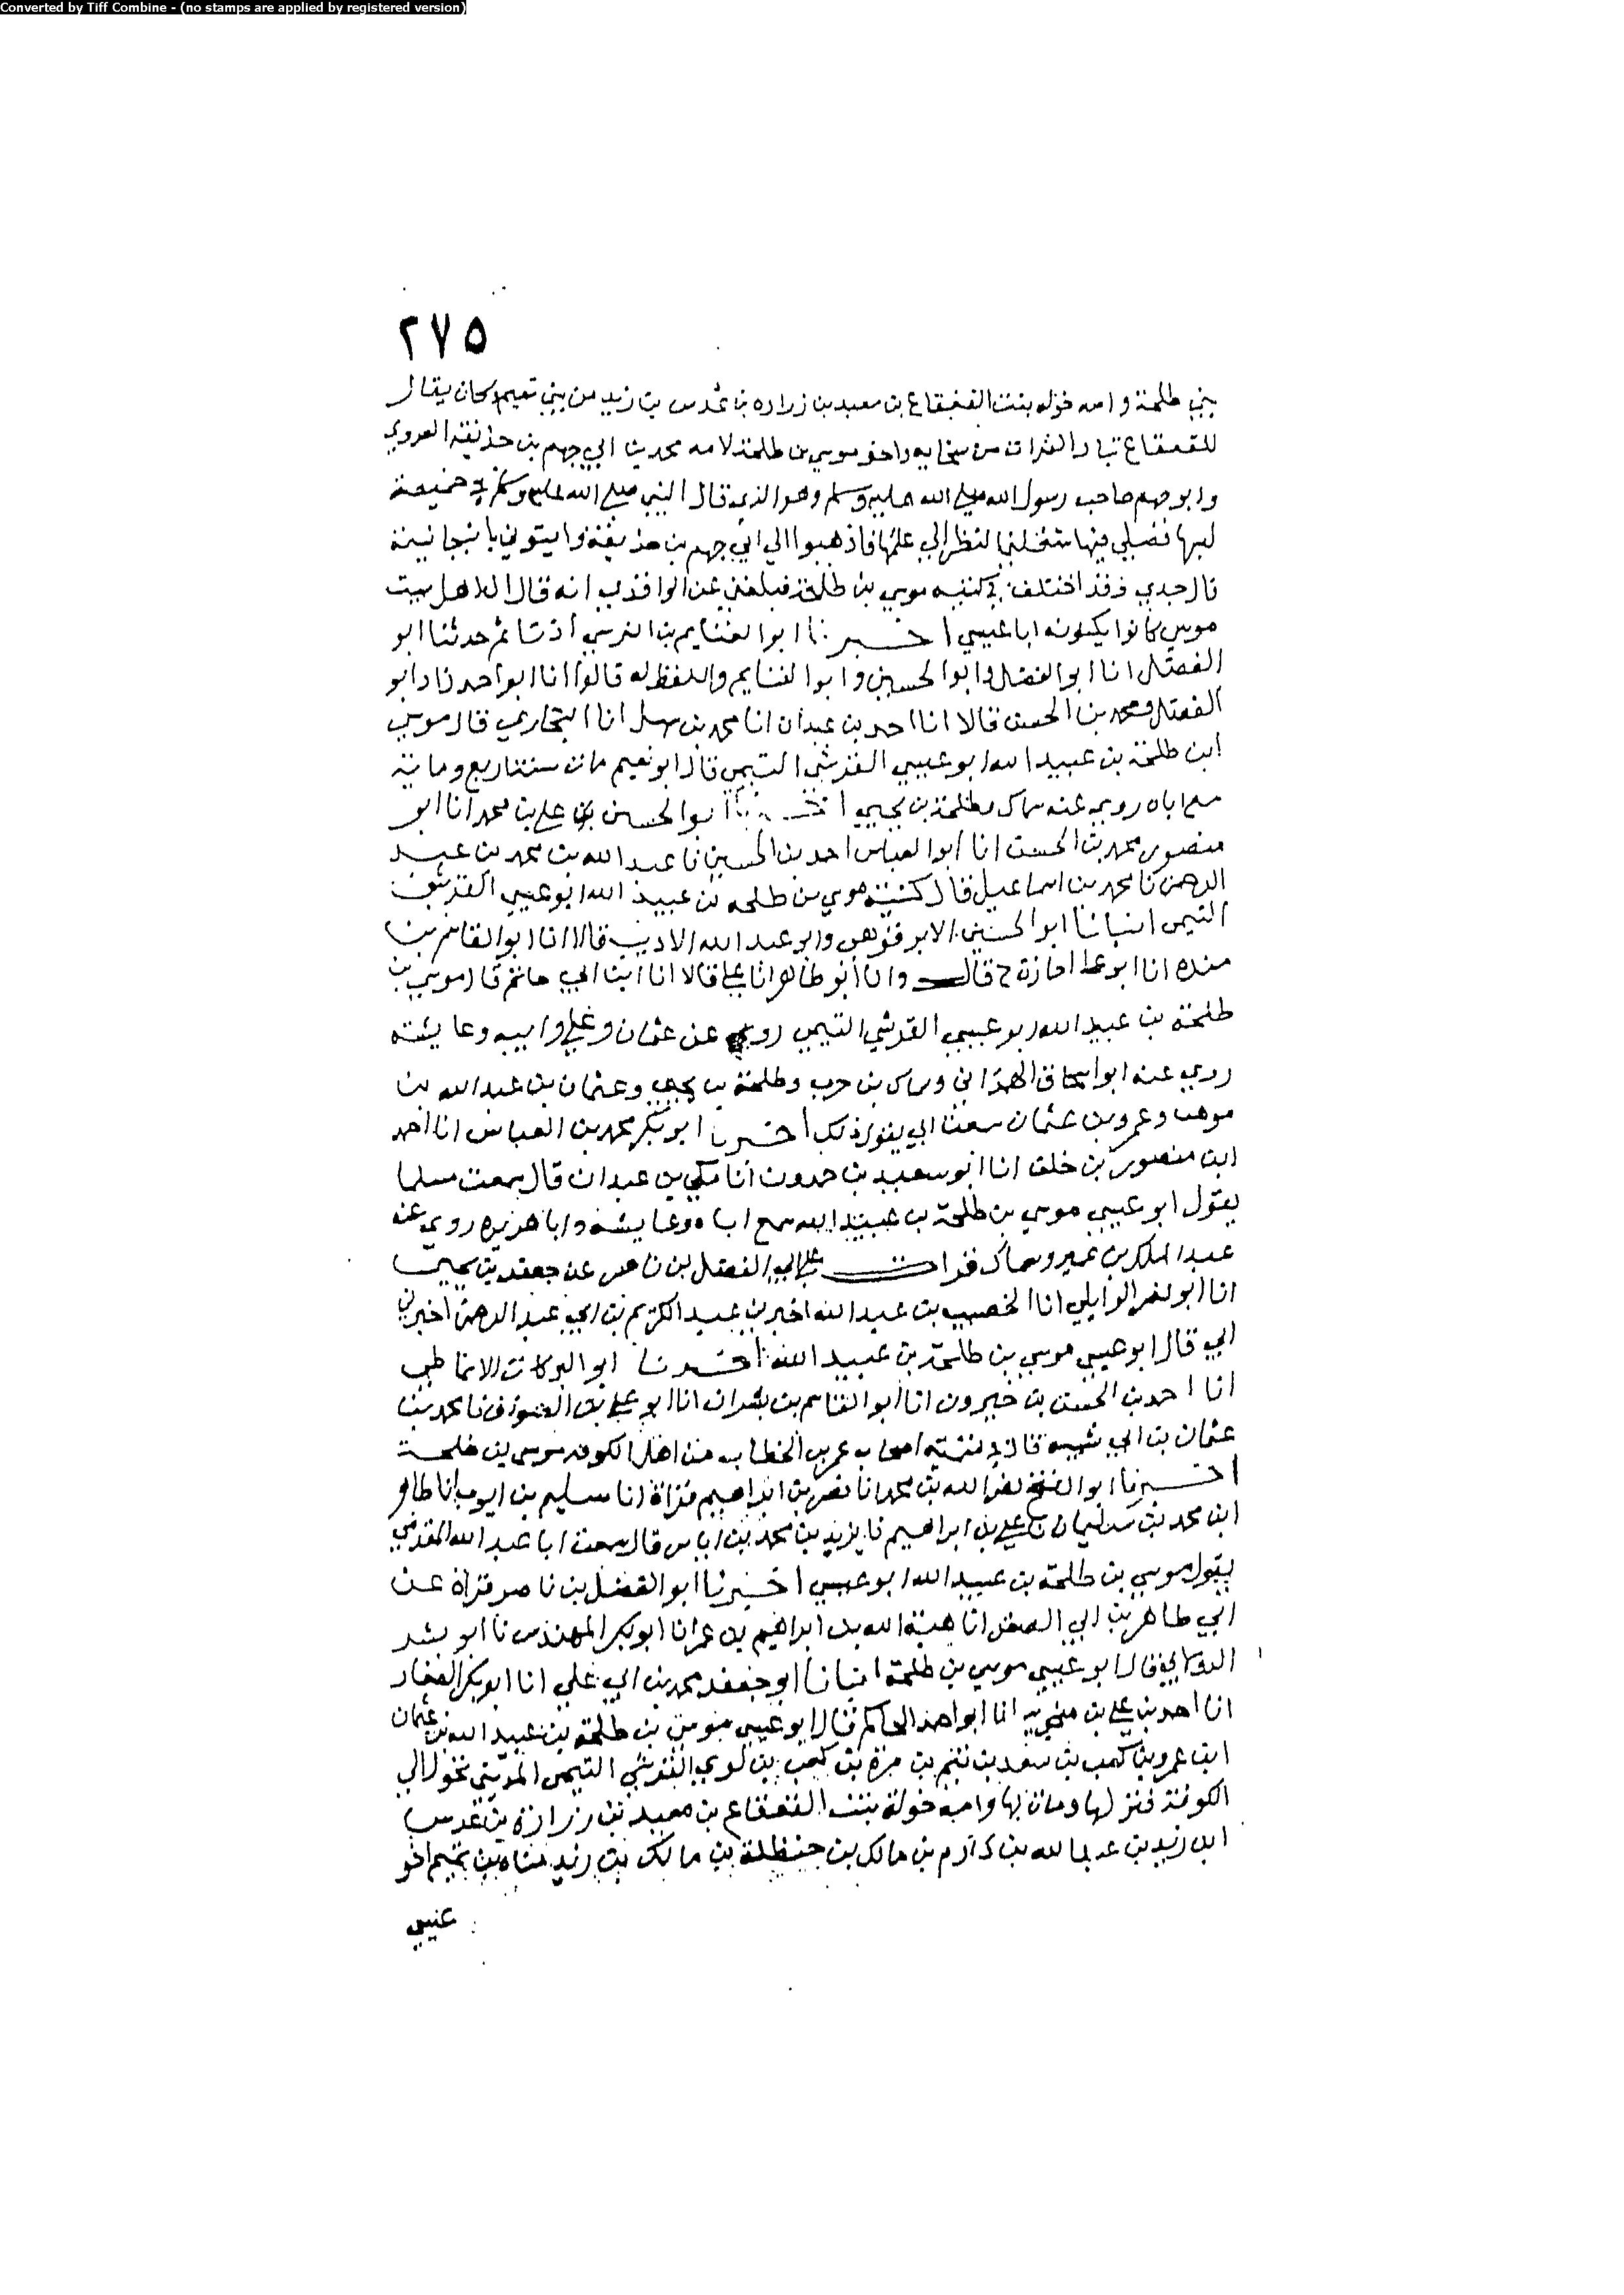 Converted by Tiff Combine - (no stamps are applied by registered version)
٢٧٥
بني طلحة وامه خوله بنت القعقاع بن معبد بن زراره بن عدس بن زيد من بني تميم وكان يقال
للقعقاع تيار الفرات من سخايه واخو موسي بن طلحة لامه محمد بن ابي جهم بن حذيفة العدوي
وابو جهم صاحب رسول الله صلي الله عليه وسلم وهو الذي قال النبي صلي الله عليه وسلم في خميصة
لبسها فصلي فيها شغلني النظر الي علمها فاذهبوا الي ابي جهم بن حذيفة وايتوني بانبجانيته
قال جدي وقد اختلف في كنيه موسي بن طلحة فبلغني عن الواقدي انه قال اهل بيت
موسي كانوا يكنونه ابا عيسي اخبرنا ابو الغنايم بن النرسي اذنا ثم حدثنا ابو
الفضل انا ابو الفضل وابو الحسين وابو الغنايم واللفظ له قالوا انا ابو احمد زاد ابو
الفضل ومحمد بن الحسن قالا انا احمد بن عبدان انا محمد بن سهل انا البخاري قال موسي
ابن طلحة بن عبيد الله ابو عيسي القرشي التيمي قال ابو نعيم مات سنة اربع وماية
سمع اباه روي عنه سماك وطلحة بن يحيي اخبرنا ابو الحسين بن علي بن محمد انا ابو
منصور محمد بن الحسن انا ابو العباس احمد بن الحسين نا عبد الله بن محمد بن عبد
الرحمن نا محمد بن اسماعيل قال كنية موسي بن طلحه بن عبيد الله ابو عيسي القرشي
التيمي انبانا ابو الحسين الابرقوهي وابو عبد الله الاديب قالا انا ابو القاسم بن
منده انا ابو علي اجازة ح قال وانا ابو طاهر انا علي قالا انا ابن ابي حاتم قال موسي بن
طلحة بن عبيد الله ابو عيسي القرشي التيمي روي عن عثمان وعلي وابيه وعايشه
روي عنه ابو اسحاق الهمداني وسماك بن حرب وطلحة بن يحيي وعثمان بن عبد الله بن
موهب وعمرو بن عثمان سمعت ابي يقول ذلك اخبرنا ابو بكر محمد بن العباس انا احمد
ابن منصور بن خلف انا ابو سعيد بن حمدون انا مكي بن عبدان قال سمعت مسلما
يقول ابو عيسي موسي بن طلحة بن عبيد الله سمع اباه وعايشه وابا هريره روي عنه
عبد الملك بن عمير وسماك قرات علي ابي الفضل بن ناصر عن جعفر بن يحيي
انا ابو نصر الوايلي انا الخصيب بن عبد الله اخبرني عبد الكريم بن ابي عبد الرحمن اخبرني
ابي قال ابو عيسي موسي بن طلحة بن عبيد الله اخبرنا ابو البركات الانماطي
انا احمد بن الحسن بن خيرون انا ابو القاسم بن بشران انا ابو علي بن الصواف نا محمد بن
عثمان بن ابي شيبه قال في تسمية اصحاب عمر بن الخطاب من اهل الكوفه موسي بن طلحة
اخبرنا ابو الفتح نصر الله بن محمد انا نصر بن ابراهيم قراة انا سليم بن ايوب انا طاهر
ابن محمد بن سليمان نا علي بن ابراهيم نا يزيد بن محمد بن اياس قال سمعت ابا عبد الله المقدمي
يقول موسي بن طلحة بن عبيد الله ابو عيسي اخبرنا ابو الفضل بن ناصر قراة عن
ابي طاهر بن ابي الصقر انا هبة الله بن ابراهيم بن عمر انا ابو بكر المهندس نا ابو بشر
الدولابي قال ابو عيسي موسي بن طلحة انبانا ابو جعفر محمد بن ابي علي انا ابو بكر الصفار
انا احمد بن علي بن منجويه انا ابو احمد الحاكم قال ابو عيسي موسي بن طلحة بن عبيد الله بن عثمان
ابن عمرو بن كعب بن سعد بن تيم بن مرة بن كعب بن لوي القرشي التيمي المديني تحول الي
الكوفة فنزلها ومات بها وامه خولة بنت القعقاع بن معبد بن زرارة بن عدس
ابن زيد بن عبد الله بن دارم بن مالك بن حنظلة بن مالك بن زيد مناه بن تميم اخو
عيسي